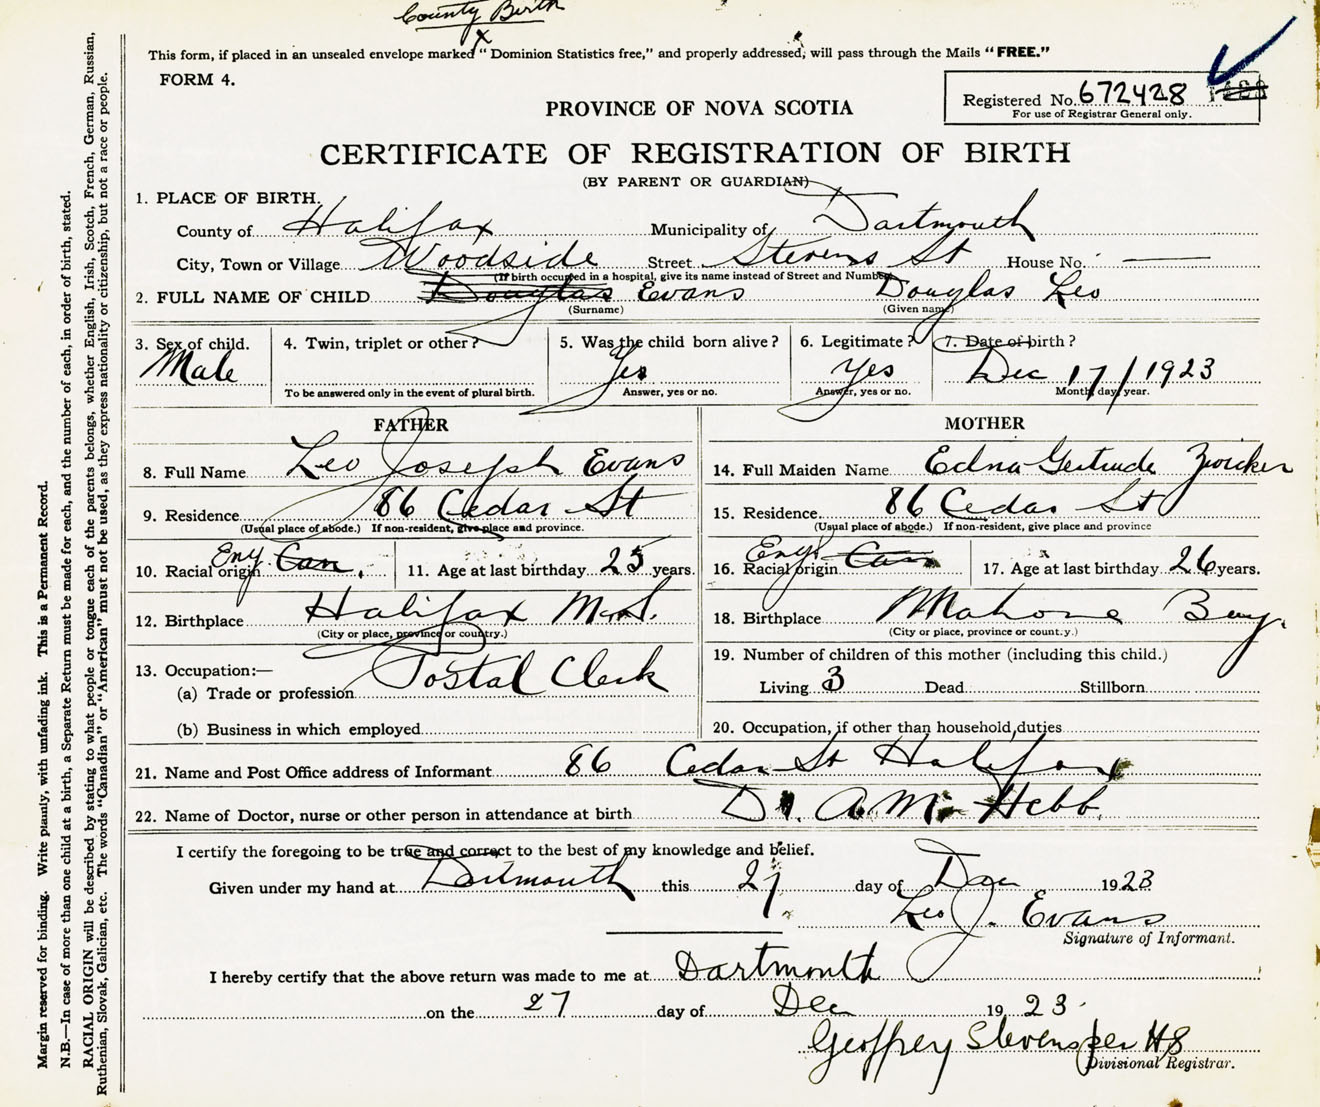 County Birth
This form, if placed in an unsealed envelope marked "Dominion Statistics free," and properly addressed, will pass through the Mails "FREE."
FORM 4.
Registered No. 672428
For use of Registrar General only.
PROVINCE OF NOVA SCOTIA
CERTIFICATE OF REGISTRATION OF BIRTH
(BY PARENT OR GUARDIAN)
1. PLACE OF BIRTH.
County of Halifax Municipality of Dartmouth
City, Town or Village Woodside Street Stevens St House No. —
(If birth occurred in a hospital, give its name instead of Street and Number)
2. FULL NAME OF CHILD Douglas Evans Douglas Leo
(Surname) (Given name)
3. Sex of child. Male
4. Twin, triplet or other?
To be answered only in the event of plural birth.
5. Was the child born alive? Yes
Answer, yes or no.
6. Legitimate? Yes
Answer, yes or no.
7. Date of birth? Dec 17/1923
Month, day, year.
FATHER
8. Full Name Leo Joseph Evans
9. Residence 86 Cedar St
(Usual place of abode.) If non-resident, give place and province.
10. Racial origin Eng Can. 11. Age at last birthday 25 years.
12. Birthplace Halifax N.S.
(City or place, province or country.)
13. Occupation:—
(a) Trade or profession Postal Clerk
(b) Business in which employed
MOTHER
14. Full Maiden Name Edna Gertrude Zwicker
15. Residence 86 Cedar St
(Usual place of abode.) If non-resident, give place and province
16. Racial origin Eng. Can 17. Age at last birthday 26 years.
18. Birthplace Mahone Bay.
(City or place, province or country.)
19. Number of children of this mother (including this child.)
Living 3 Dead Stillborn
20. Occupation, if other than household duties
21. Name and Post Office address of Informant 86 Cedar St Halifax
22. Name of Doctor, nurse or other person in attendance at birth Dr. A.M. Hebb
I certify the foregoing to be true and correct to the best of my knowledge and belief.
Given under my hand at Dartmouth this 27 day of Dec 1923
Leo J. Evans
Signature of Informant.
I hereby certify that the above return was made to me at Dartmouth
on the 27 day of Dec 1923
Geoffrey Stevens per HS
Divisional Registrar.
Margin reserved for binding. Write plainly, with unfading ink. This is a Permanent Record.
N.B.—In case of more than one child at a birth, a Separate Return must be made for each, and the number of each, in order of birth, stated.
RACIAL ORIGIN will be described by stating to what people or tongue each of the parents belongs, whether English, Irish, Scotch, French, German, Russian,
Ruthenian, Slovak, Galician, etc. The words "Canadian" or "American" must not be used, as they express nationality or citizenship, but not a race or people.